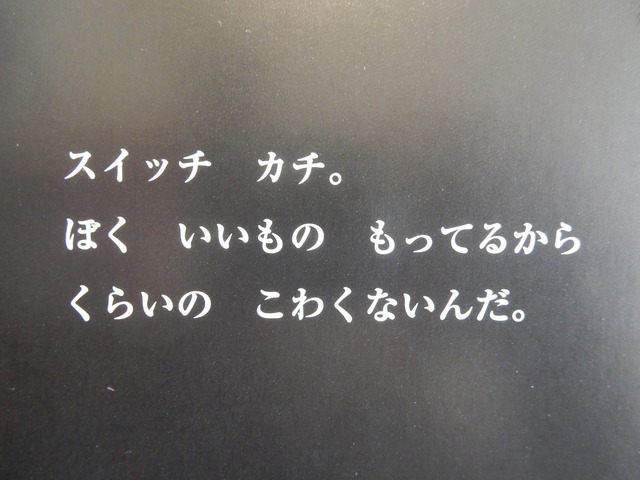 スイッチ　カチ。
ぼく　いいもの　もってるから
くらいの　こわくないんだ。